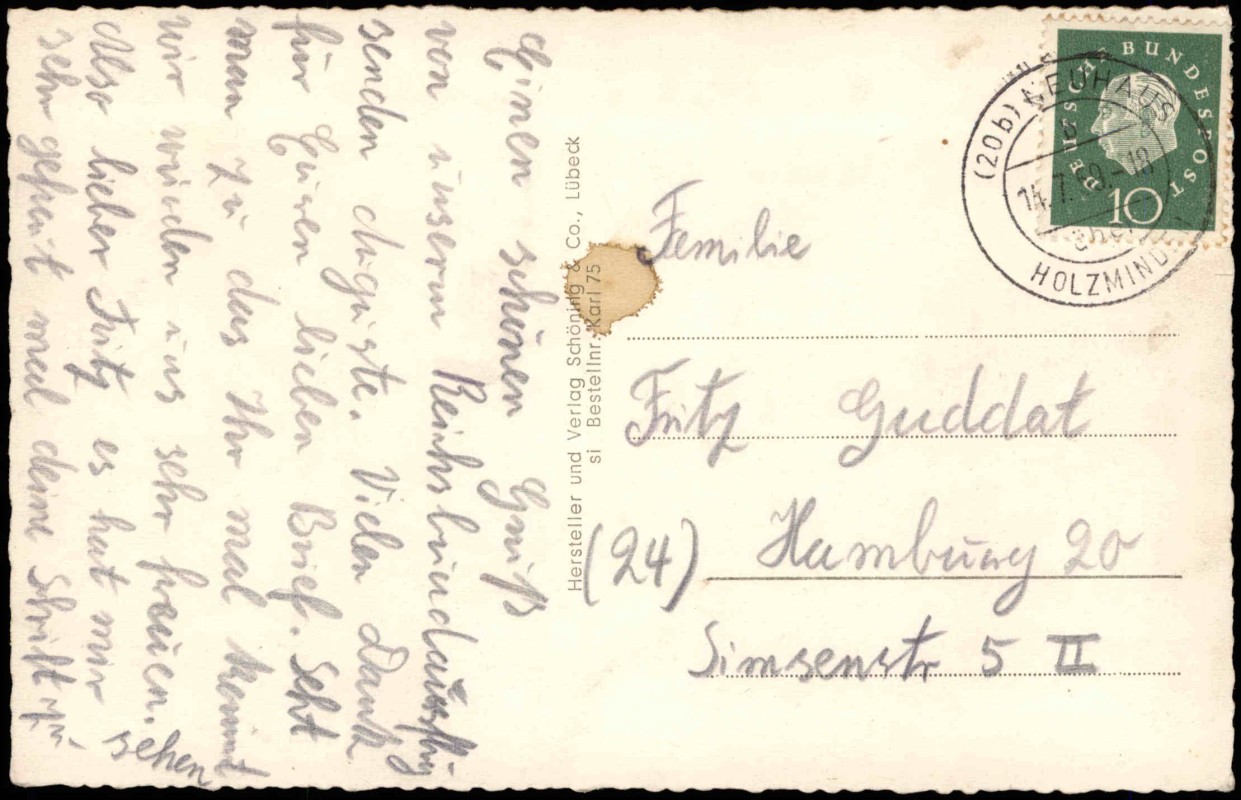 Einen schönen Gruß
von unserm Reichsbundausflug
senden Auguste. Vielen Dank
für Euren lieben Brief. Seht
man zu das Ihr mal kommt
wir würden uns sehr freuen.
Also lieber Fritz es hat mir
sehr gefreut mal deine Schrift zu
sehen
Hersteller und Verlag Schöning & Co., Lübeck
si Bestellnr. Karl 75
DEUTSCHE BUNDESPOST
10
(20b) NEUHAUS
b
14.7.59-18
HOLZMINDEN
Familie
Fritz Guddat
(24) Hamburg 20
Simsenstr 5 II